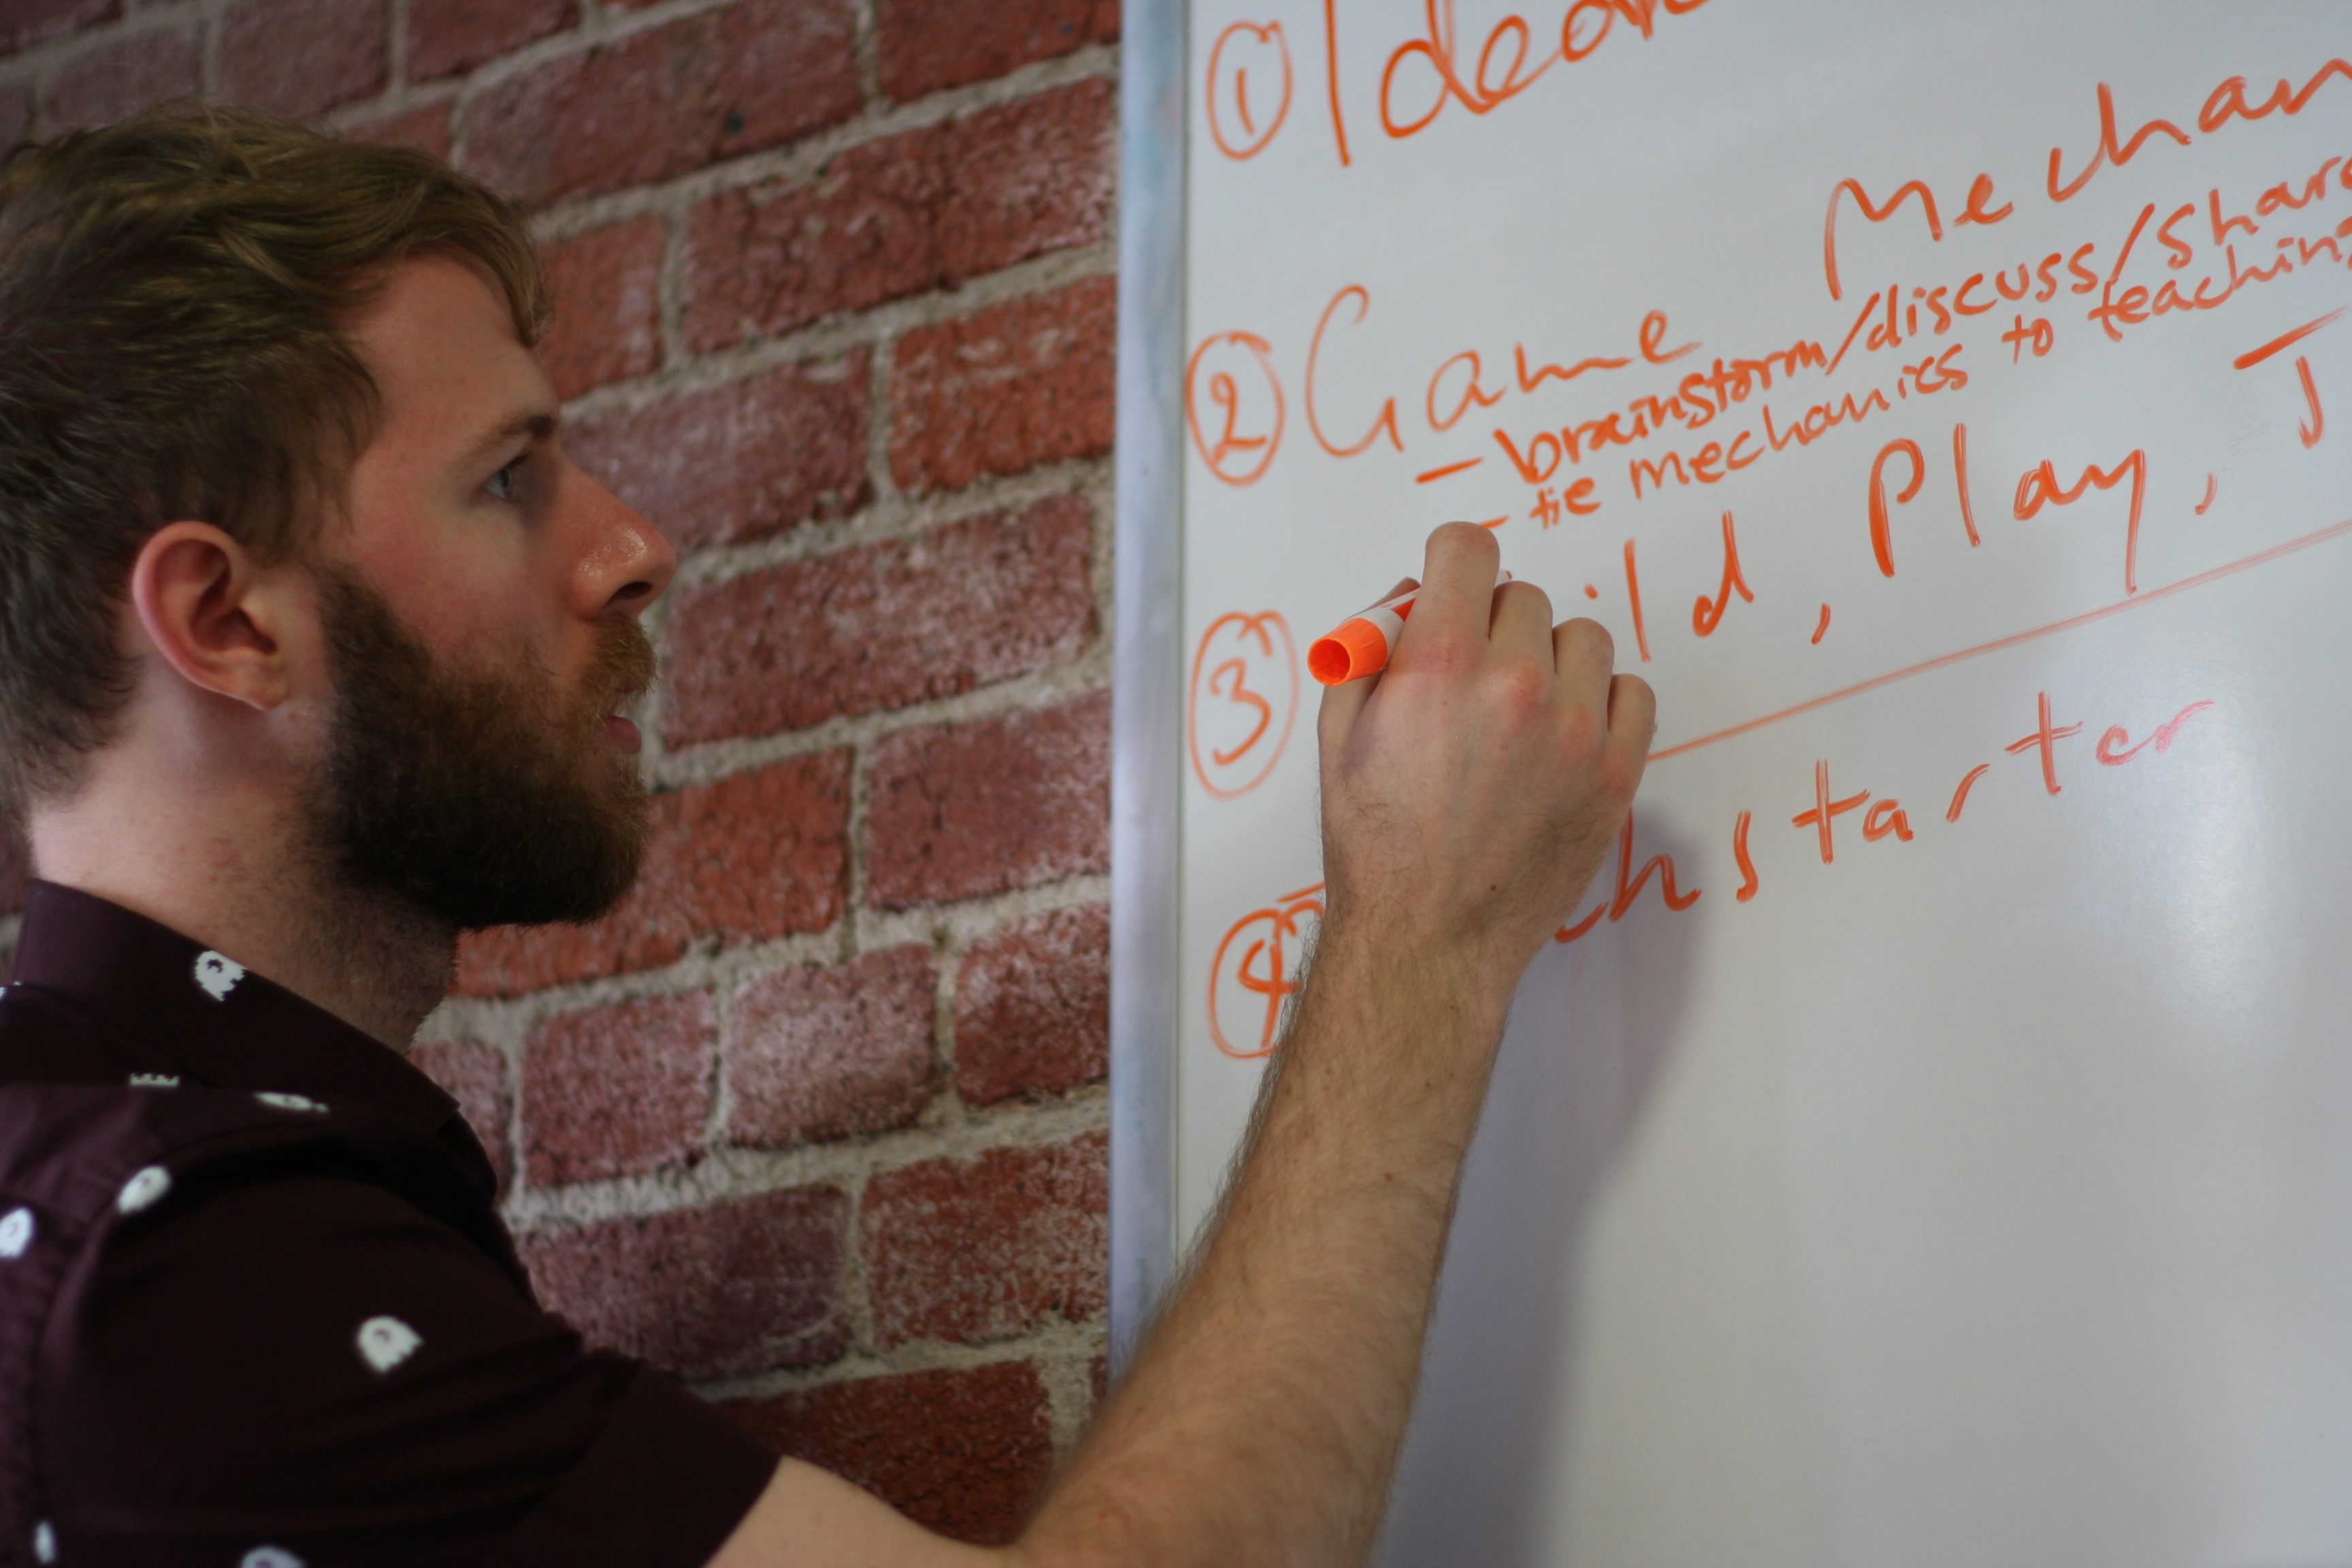 ①
② Game Mechan
– brainstorm/discuss/share
– tie mechanics to teaching
③ ild, Play, T
④ hstarter